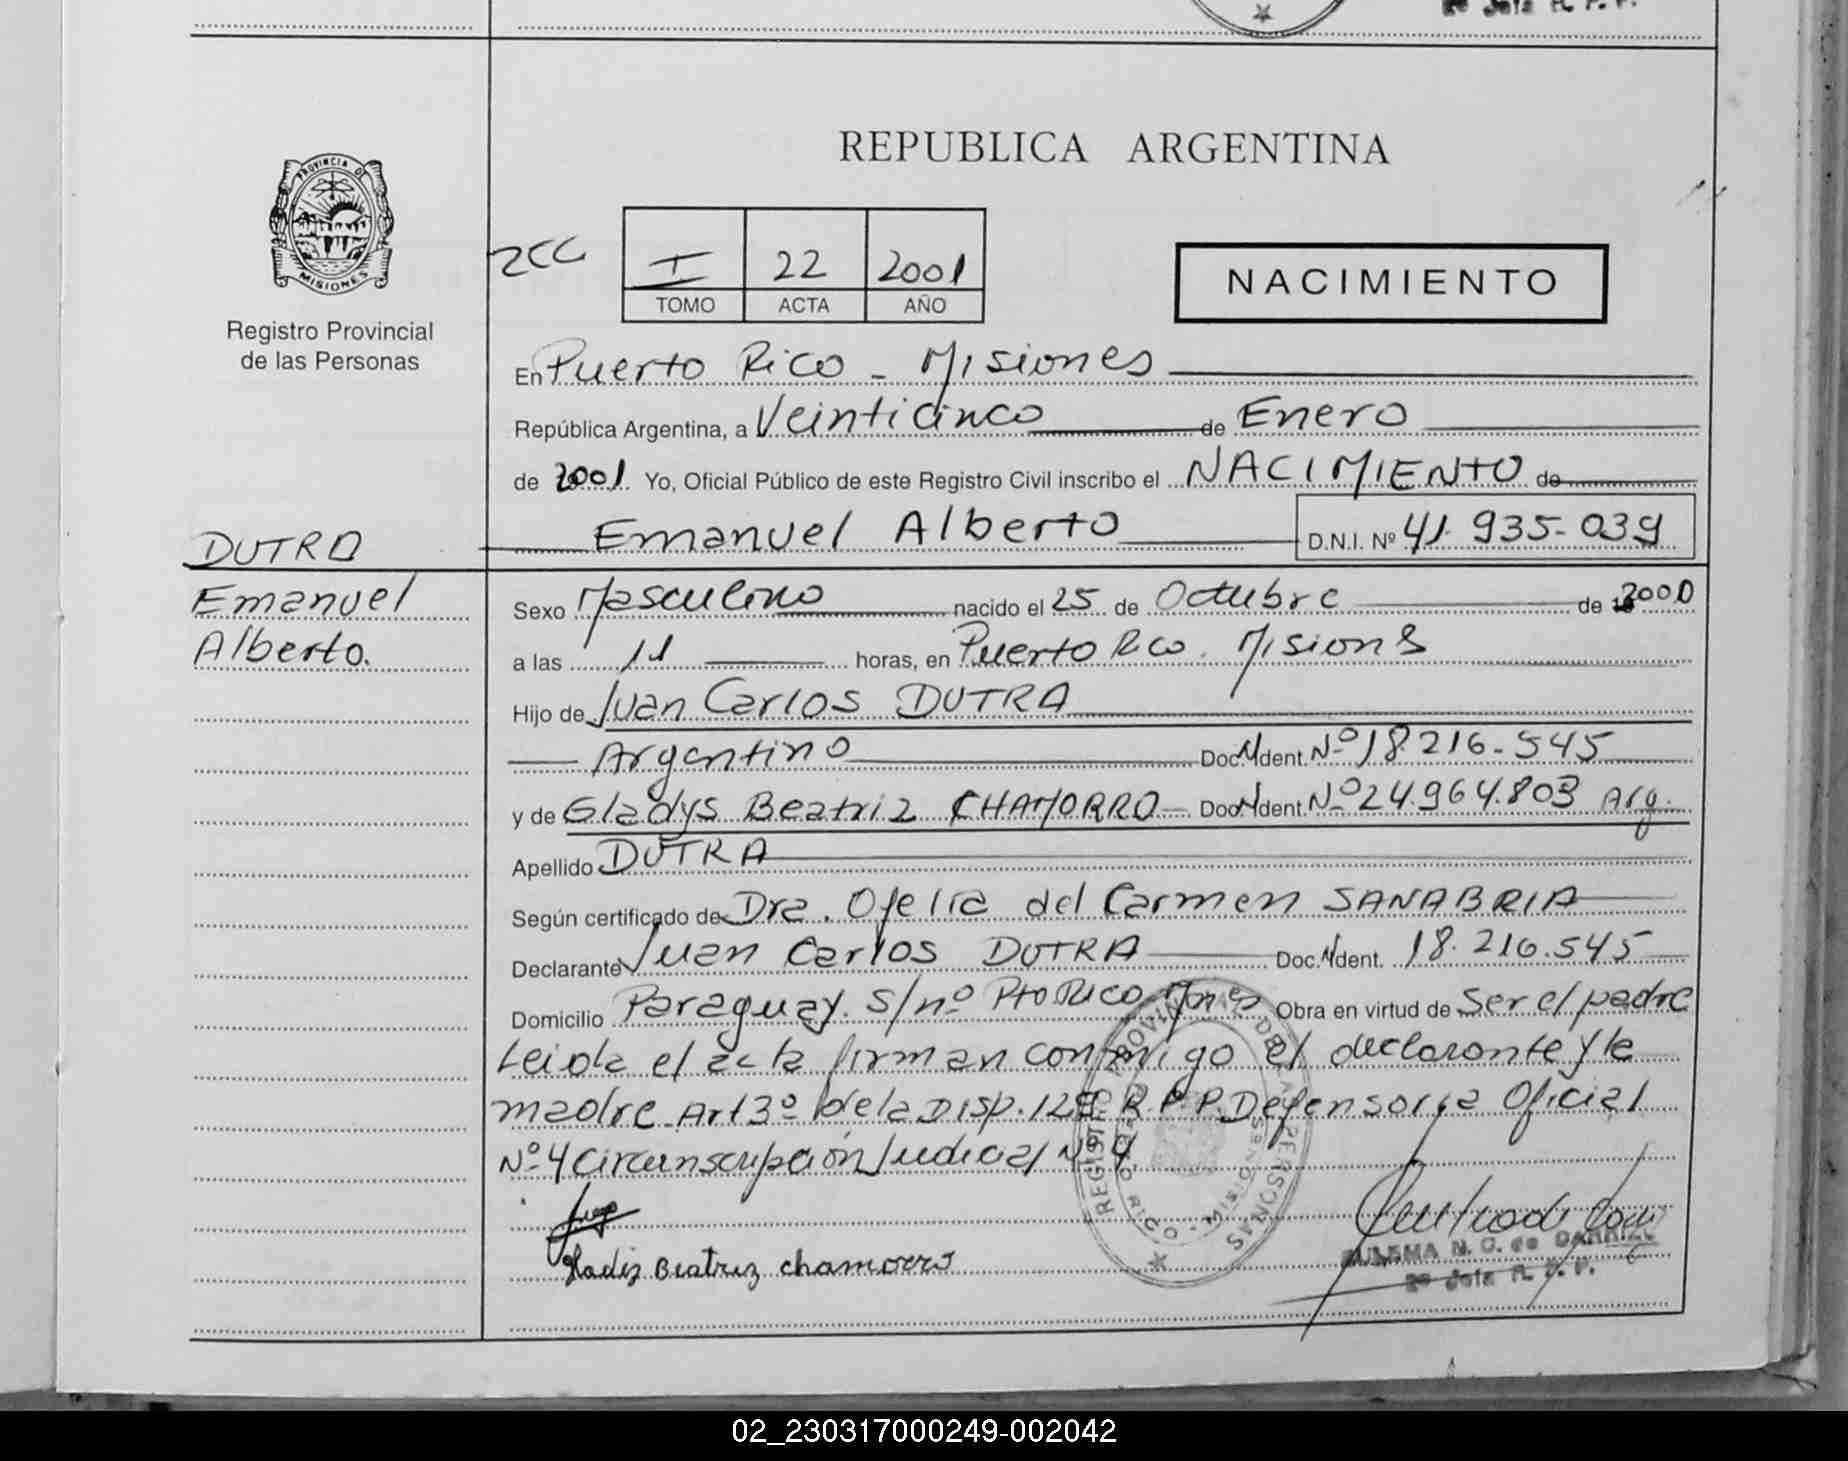 2º Jefa R. P. P.
REPUBLICA ARGENTINA
PROVINCIA DE
MISIONES
Registro Provincial
de las Personas
I 22 2001
TOMO ACTA AÑO
NACIMIENTO
En Puerto Rico - Misiones
República Argentina, a Veinticinco de Enero
de 2001 Yo, Oficial Público de este Registro Civil inscribo el NACIMIENTO de
DUTRA
Emanuel Alberto D.N.I. Nº 41.935-039
Emanuel
Alberto.
Sexo Masculino nacido el 25 de Octubre de 2000
a las 11 horas, en Puerto Rco. Misions
Hijo de Juan Carlos DUTRA
Argentino Doc. Ident. Nº 18.216-545
y de Gladys Beatriz CHAMORRO Doc. Ident. Nº 24.964.803 Arg.
Apellido DUTRA
Según certificado de Dra. Ofelia del Carmen SANABRIA
Declarante Juan Carlos DUTRA Doc. Ident. 18.216.545
Domicilio Paraguay. S/nº Pto Rico Mnes Obra en virtud de Ser el padre
Leida el acta firman conmigo el declarante y la
madre Art 3º de la Disp. 128 R.P.P. Defensoria Oficial
Nº 4 Circunscripción Judicial Nº 4
REGISTRO PROVINCIAL DE LAS PERSONAS
MISIONES
Gladis Beatriz chamorro
ZULEMA N. G. de CARRIZO
2º Jefa R. P. P.
02_230317000249-002042